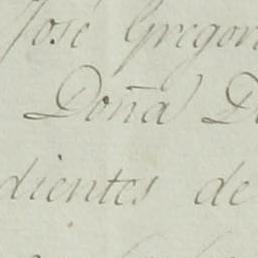 José Gregor
Doña D
dientes de